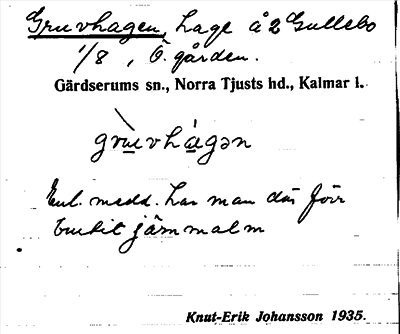 Gruvhagen, hage å 2 Gullebo
1/8, Ö. gården.
Gärdserums sn., Norra Tjusts hd., Kalmar l.
grùvhágən
Enl. medd. har man där förr
brukit järnmalm
Knut-Erik Johansson 1935.